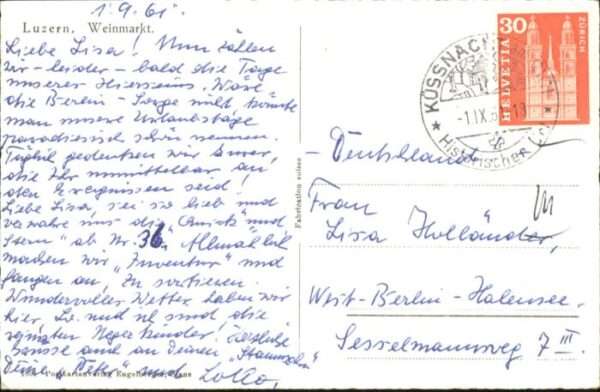 1.9.61.
Luzern, Weinmarkt.
Liebe Lisa! Nun zählen
wir - leider - bald die Tage
unseres Hierseins. Wäre
die Berlin - Sorge nicht könnte
man unsere Urlaubstage
paradiesisch schön nennen.
Täglich gedenken wir Eurer,
die Ihr unmittelbar an
den Ereignissen seid!
Liebe Lisa, sei so lieb und
verwahre uns die "Quick" und
"Stern" ab Nr. 36. Allmählich
machen wir "Inventur" und
fangen an, zu sortieren.
Wundervolles Wetter haben wir
hier. Lu. und ich sind die
reinsten Negerkinder! Herzliche
Grüsse auch an Deinen "Stammhalter"
Deine Peter und Lotto.
Postkartenverlag Engelberger, Stans
Fabrication suisse
30
HELVETIA
ZÜRICH
KÜSSNACHT
-1.IX.61-13
Historischer
Deutschland
Frau
Lisa Holländer,
West-Berlin-Halensee.
Sesselmannsweg 7 III.